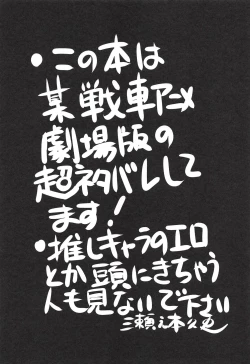 •この本は
某戦車アニメ
劇場版の
超ネタバレして
ます!
•推しキャラのエロ
とか頭にきちゃう
人も見ないで下さい